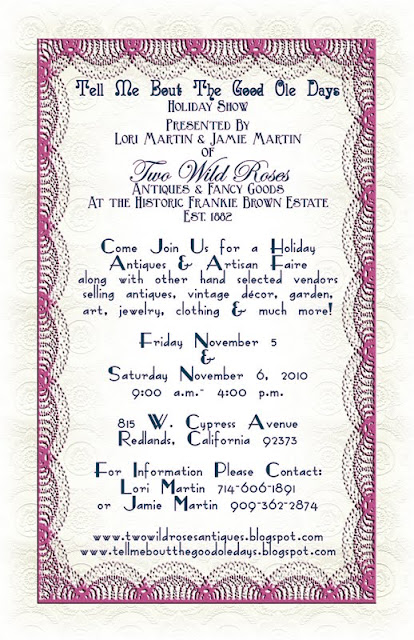 Tell Me Bout The Good Ole Days
Holiday Show
Presented By
Lori Martin & Jamie Martin
of
Two Wild Roses
Antiques & Fancy Goods
At the Historic Frankie Brown Estate
Est. 1882
Come Join Us for a Holiday
Antiques & Artisan Faire
along with other hand selected vendors
selling antiques, vintage décor, garden,
art, jewelry, clothing & much more!
Friday November 5
&
Saturday November 6, 2010
9:00 a.m.- 4:00 p.m.
815 W. Cypress Avenue
Redlands, California 92373
For Information Please Contact:
Lori Martin 714-606-1891
or Jamie Martin 909-362-2874
www.twowildrosesantiques.blogspot.com
www.tellmeboutthegoodoledays.blogspot.com